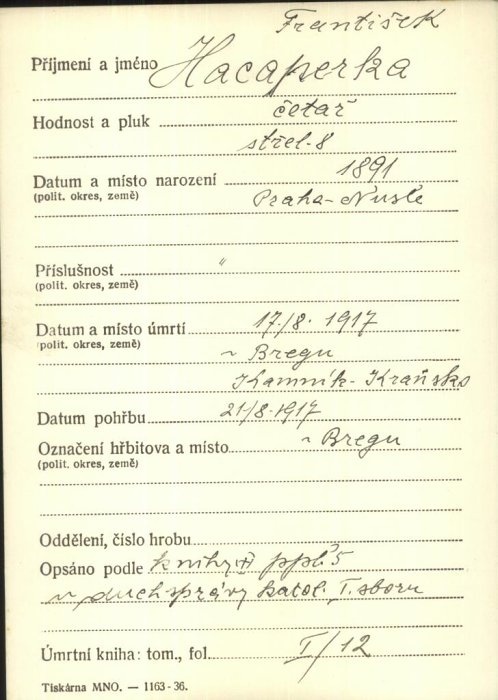 František
Příjmení a jméno Hacaperka
Hodnost a pluk četař
střel. 8
Datum a místo narození 1891
(polit. okres, země) Praha-Nusle
Příslušnost "
(polit. okres, země)
Datum a místo úmrtí 17./8. 1917
(polit. okres, země) v Bregu
Kamnik - Kraňsko
Datum pohřbu 21/8. 1917
Označení hřbitova a místo v Bregu
(polit. okres, země)
Oddělení, číslo hrobu
Opsáno podle knihy ppl. 5
duch. správy katol. I. sboru
Úmrtní kniha: tom., fol. I/12
Tiskárna MNO. — 1163-36.